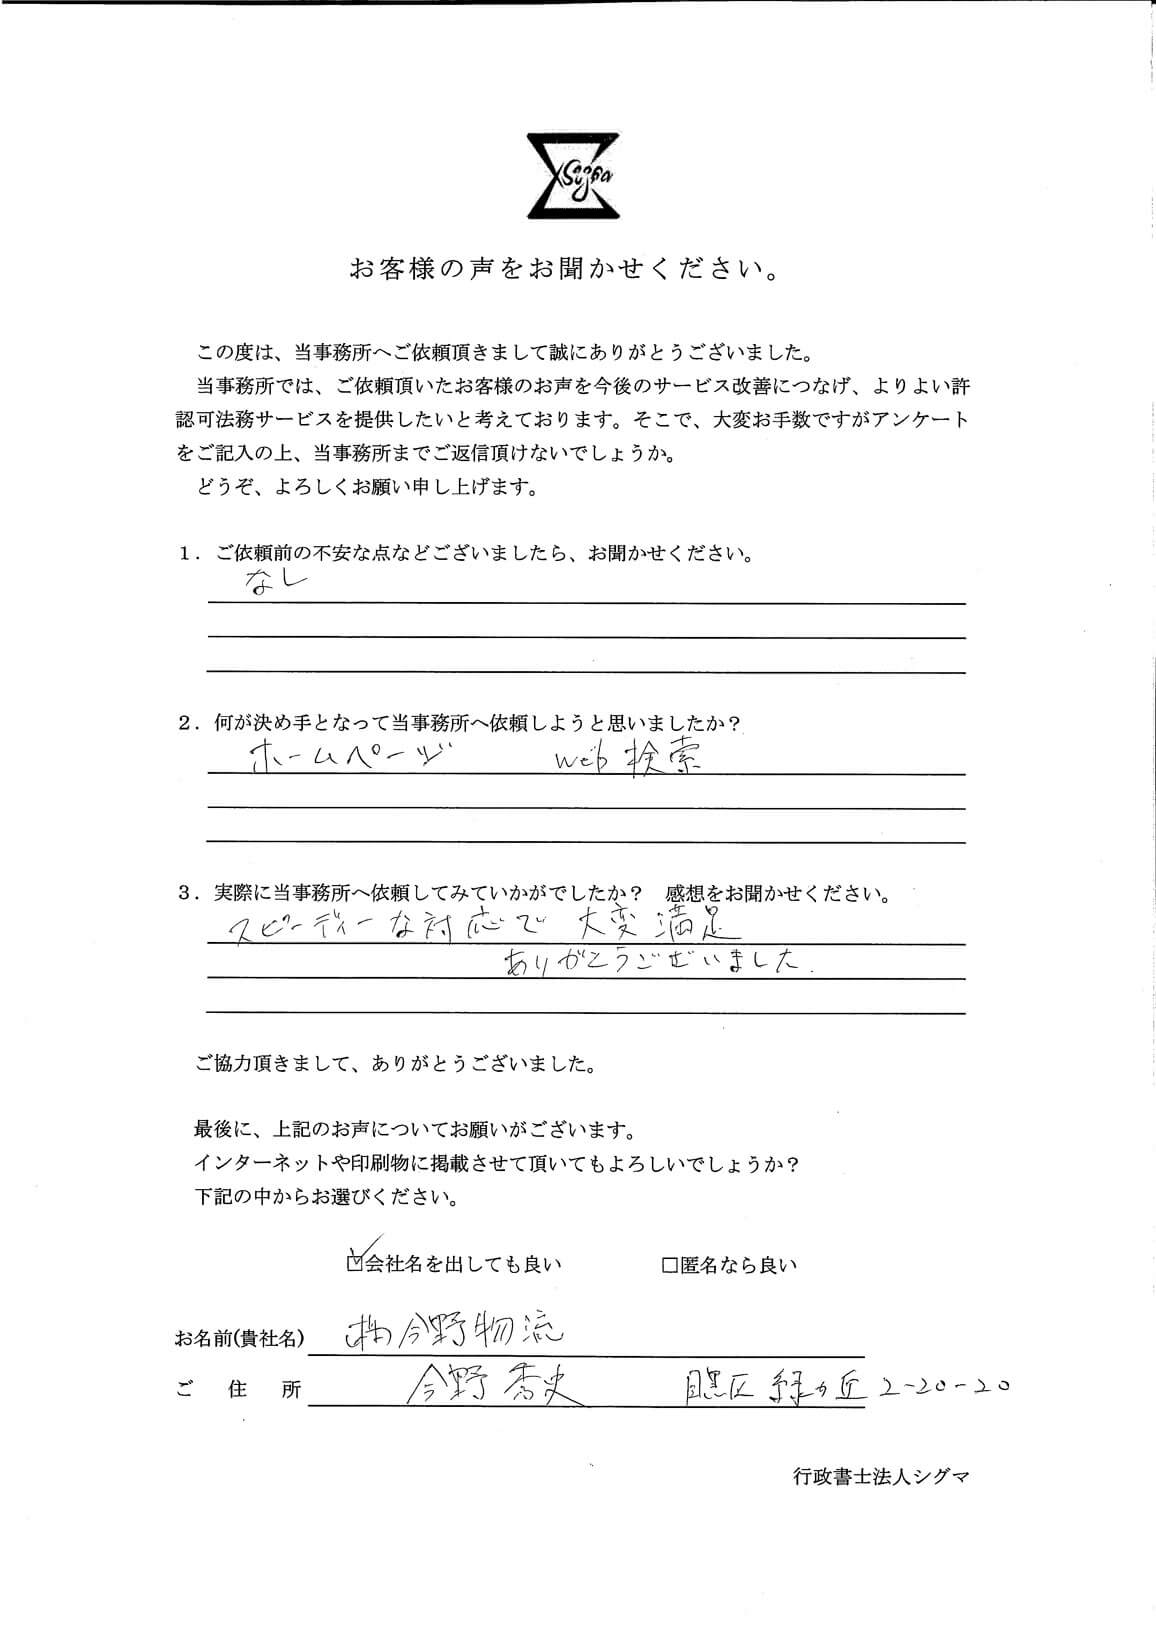 Sigma
お客様の声をお聞かせください。
この度は、当事務所へご依頼頂きまして誠にありがとうございました。
当事務所では、ご依頼頂いたお客様のお声を今後のサービス改善につなげ、よりよい許
認可法務サービスを提供したいと考えております。そこで、大変お手数ですがアンケート
をご記入の上、当事務所までご返信頂けないでしょうか。
どうぞ、よろしくお願い申し上げます。
１．ご依頼前の不安な点などございましたら、お聞かせください。
なし
２．何が決め手となって当事務所へ依頼しようと思いましたか？
ホームページ　web検索
３．実際に当事務所へ依頼してみていかがでしたか？　感想をお聞かせください。
スピーディーな対応で 大変満足
ありがとうございました.
ご協力頂きまして、ありがとうございました。
最後に、上記のお声についてお願いがございます。
インターネットや印刷物に掲載させて頂いてもよろしいでしょうか？
下記の中からお選びください。
☑会社名を出しても良い　□匿名なら良い
お名前(貴社名) ㈱今野物流
ご住所 今野 史 目黒区 緑が丘 2-20-20
行政書士法人シグマ